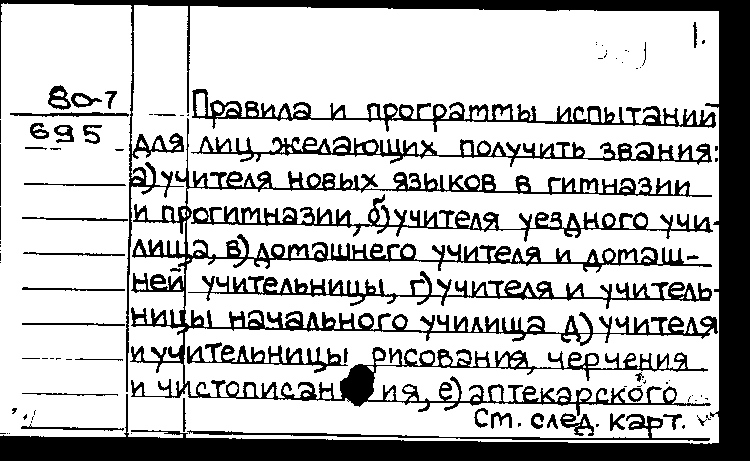 1.
80-7
695
Правила и программы испытаний
для лиц, желающих получить звания:
а) учителя новых языков в гимназии
и прогимназии, б) учителя уездного учи-
лища, в) домашнего учителя и домаш-
ней учительницы, г) учителя и учитель-
ницы начального училища д) учителя
и учительницы рисования, черчения
и чистописания, е) аптекарского
См. след. карт.